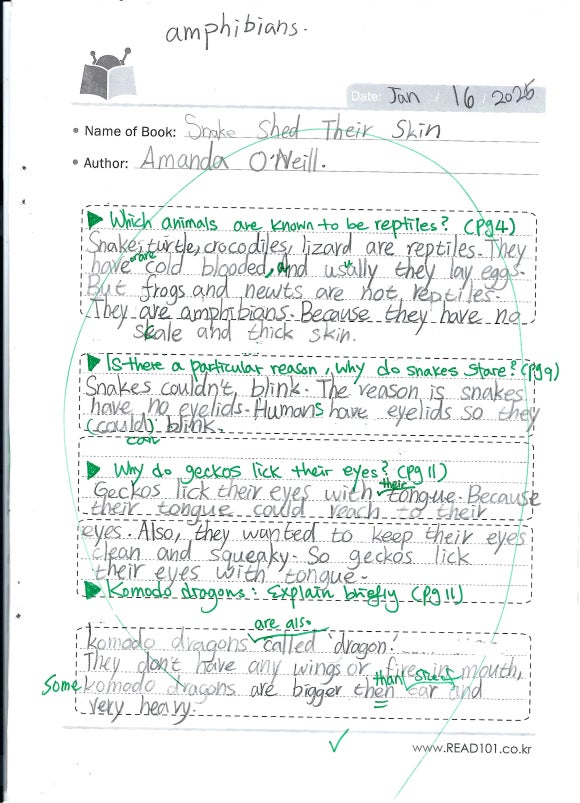 amphibians.
Date: Jan / 16 / 2025
• Name of Book: Snake Shed Their Skin
• Author: Amanda O'Neill.
▶ Which animals are known to be reptiles? (pg4)
Snake, turtle, crocodiles, lizard are reptiles. They
are
have cold blooded, and usually they lay eggs.
But frogs and newts are not reptiles.
They are amphibians. Because they have no
scale and thick skin.
▶ Is there a particular reason, why do snakes stare? (pg9)
Snakes couldn't blink. The reason is snakes
have no eyelids. Humans have eyelids so they
(could) blink.
can
▶ Why do geckos lick their eyes? (pg 11)
their
Geckos lick their eyes with tongue. Because
their tongue could reach to their
eyes. Also, they wanted to keep their eyes
clean and squeaky. So geckos lick
their eyes with tongue.
▶ Komodo dragons: Explain briefly (pg 11)
are also
komodo dragons called 'dragon.'
They don't have any wings or fire in mouth,
than
Some komodo dragons are bigger then car and
very heavy.
www.READ101.co.kr